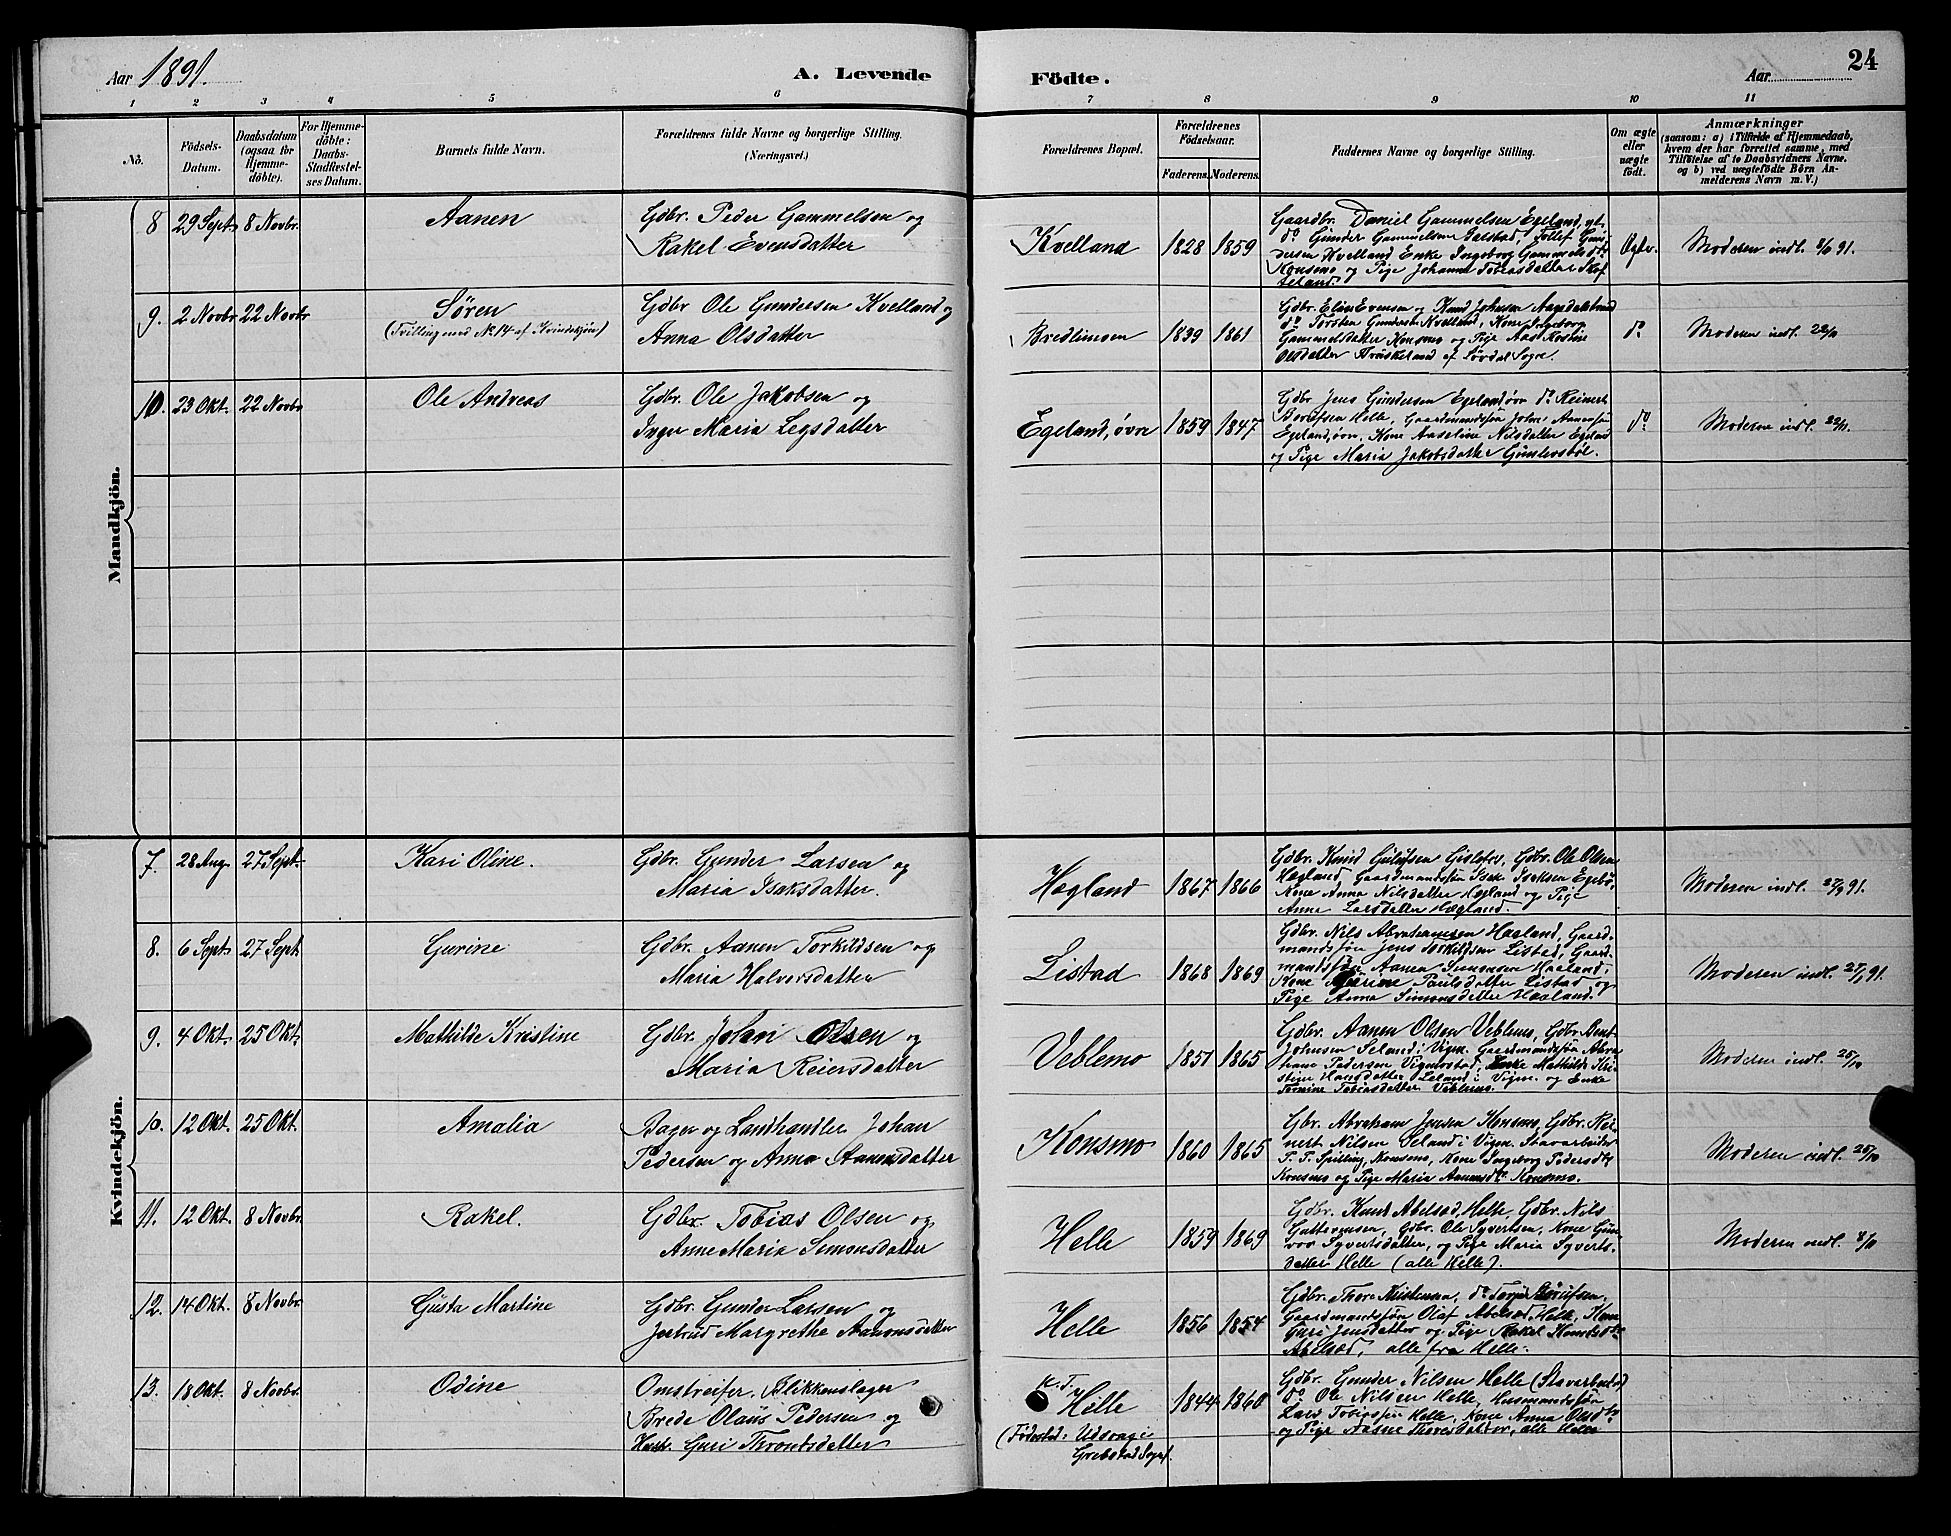 Aar 1891.
A. Levende
Födte.
Aar
24
1 2 3 4 5 6 7 8 9 10 11
No.
Födsels-Datum.
Daabsdatum (ogsaa for Hjemmedöbte).
For Hjemmedöbte: Daabs-Stadfæstelses Datum.
Barnets fulde Navn.
Forældrenes fulde Navne og borgerlige Stilling. (Næringsvei.)
Forældrenes Bopæl.
Forældrenes Födselsaar.
Faderens. Moderens.
Faddernes Navne og borgerlige Stilling.
Om ægte eller uægte födt.
Anmærkninger (saasom: a) i Tilfælde af Hjemmedaab, hvem der har forrettet samme, med Tilföielse af to Daabsvidners Navne. og b) ved uægtefödte Börn Anmelderens Navn m. V.)
Mandkjön.
8 29 Sept 8 Novbr. Aanen
Gdbr. Peder Gammelsen og
Rakel Evensdatter
Kvelland 1828 1859
Gaardbr. Daniel Gammelsen Egeland, yt.
do Gunder Gammelsen, Tollef Gun-
dersen Kvelland Enke Ingeborg Gammelsdtr
Konsmo og Pige Johanne Tobiasdatter Skof-
teland
Ægte. Moderen indl. 8/11 91.
9. 2 Novbr 22 Novbr Sören
(Tvilling med No 14 af Kvindekjön)
Gdbr Ole Gundersen Kvelland og
Anna Olsdatter
Bredlimoen 1839 1861
Gdbr. Elias Evensen og Knud Johnsen
do Torsten Gundersen Kvelland, Kone Ingeborg
Gammelsdatter Konsmo og Pige Aase Kristine
Olsdatter af Sogn.
do Moderen indl. 22/11
10. 23 Okt. 22 Novbr Ole Andreas
Gdbr. Ole Jakobsen og
Inger Maria Legsdatter
Egeland, øvre 1859 1847
Gdbr Jens Gundersen Egeland, øvre do Reinert
Berntsen Helle, Gaardmandssøn John Aanensen
Egeland, øvre, Kone Aaseline Nilsdatter Egeland
og Pige Maria Jakobsdatter
do Moderen indl. 22/11.
Kvindekjön.
7. 28 Aug. 27 Sept. Kari Oline.
Gdbr. Gunder Larsen og
Maria Isaksdatter.
Hægland 1867 1866
Gdbr. Knud, Gdbr. Ole Olsen
Hægland, Gaardmandssøn Isak Isaksen Egebø,
Kone Anna Nilsdatter Hægland og Pige
Anne Larsdatter Hægland.
Moderen indl. 27/9 91.
8. 6 Sept 27 Sept Gurine
Gdbr. Aanen Torkildsen og
Maria Halvorsdatter
Listad 1868 1869
Gdbr. Nils Abrahamsen Haaland, Gaard-
mandssøn Jens Torkildsen Listad, Gaard-
mandssøn Aanen Simonsen Haaland,
Kone Paulsdatter Listad og
Pige Anna Simonsdatter Haaland.
Moderen indl. 27/9 91.
9. 4 Okt. 25 Okt. Mathilde Kristine
Gdbr. Johan Olsen og
Maria Reiersdatter
Veblemo 1851 1865
Gdbr. Aanen Olsen Veblemo, Gdbr. Bent
Johnsen Seland i Vigm. Gaardmandssøn Abra-
hane Pedersen Vigmostad, Enke Mathilde Kri-
stine Hansdatter Seland i Vigm. og Enke
Tomine Tobiasdatter Veblemo.
Moderen indl. 25/10
10. 12 Okt. 25 Okt. Amalia
Bager og Landhandler Johan
Pedersen og Anna Aanensdatter
Konsmo 1860 1865
Gbr. Abraham Jensen Konsmo, Gdbr. Rei-
nert Nilsen Seland i Vigm. Stavarbeider
P. P. Spilling, Konsmo, Kone Ingeborg Pedersdtr
Konsmo og Pige Maria Aanensdtr Konsmo.
Moderen indl. 25/10
11. 12 Okt. 8 Novbr. Rakel.
Gdbr. Tobias Olsen og
Anne Maria Simonsdatter
Helle 1859 1869
Gdbr. Knut Abelsød Helle, Gdbr. Nils
Guttormsen, Gdbr. Ole Syvertsen, Kone Gun-
vor Syvertsdatter, og Pige Maria Syverts-
datter Helle (alle Helle).
Moderen indl. 8/11
12. 14 Okt. 8 Novbr. Gusta Martine
Gdbr. Gunder Larsen og
Jortrud Margrethe Aanonsdatter
Helle 1856 1854
Gdbr. Thore Kristensen, do
Gaardmandssøn Olaf Abelsød Helle, Kone
Guri Jensdatter og Pige Rakel Knutsdtr
Abelsød, alle fra Helle.
13. 18 Okt. 8 Novbr. Odine
Omstreifer, Blikkenslager
Brede Olaus Pedersen og
Hust. Guri Throndsdatter
K. T.
Helle 1844 1860
(Fødested: Udvaag i
Grebstad Sogn).
Gdbr. Gunder Nilsen Helle (Stavarbeider)
do Ole Nilsen Helle, Husmandssøn
Lars Tobiassen Helle, Kone Anna Olsdtr
og Pige Aasne Thoresdatter, alle Helle